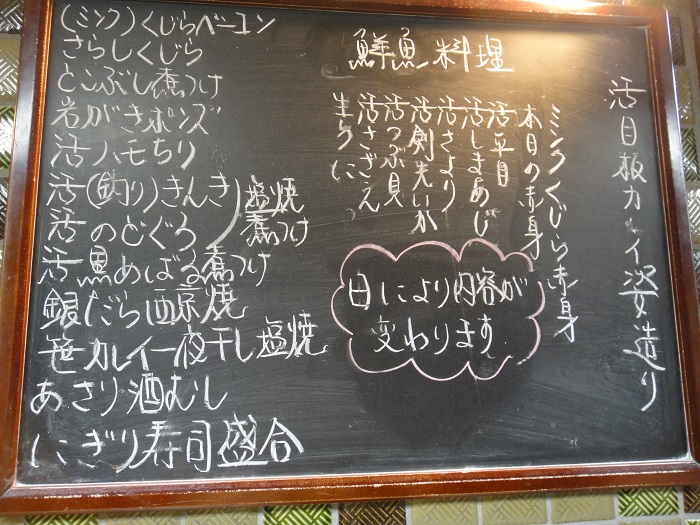 鮮魚料理
活目板カレイ姿造り
ミンクくじら赤身
本日の赤身
活平目
活しまあじ
活さより
活剣先いか
活つぶ貝
活さざえ
生うに
日により内容が
変わります
(ミンク)くじらベーコン
さらしくじら
とこぶし煮つけ
岩がきポンズ
活ハモちり
活(釣り)きんき
活のどぐろ
塩焼
煮つけ
活黒めばる煮つけ
銀だら西京焼
笹カレイ一夜干し塩焼
あさり酒むし
にぎり寿司盛合